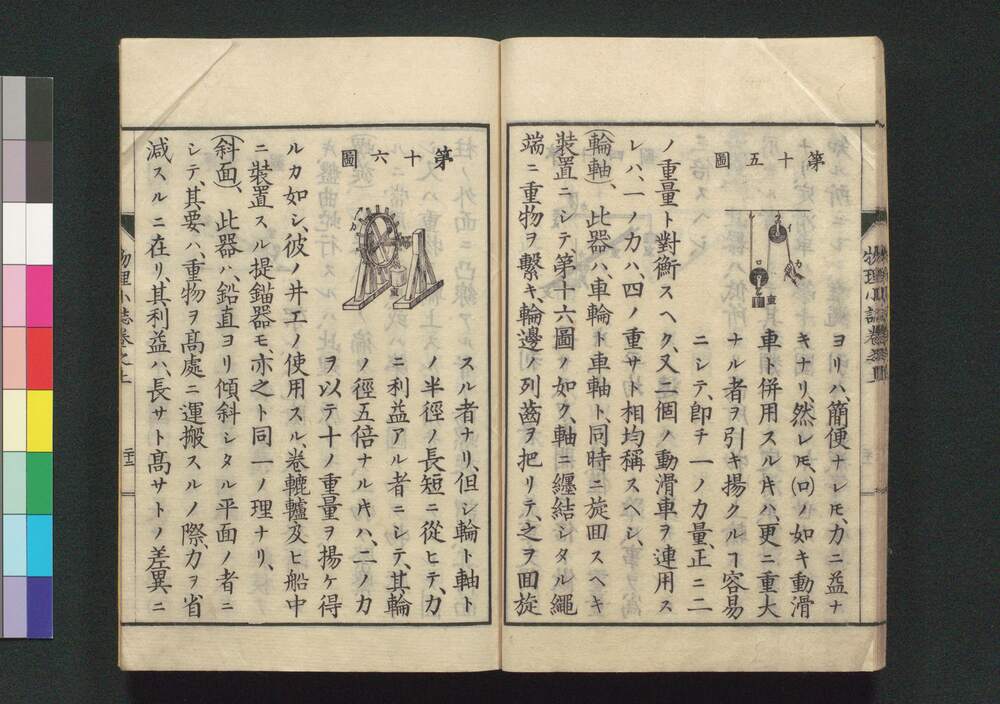 第十五圖
ヨリハ、簡便ナレ𪜈、力ニ益ナ
キナリ、然レ𪜈、(ロ)ノ如キ動滑
車ト併用スル𪜈ハ、更ニ重大
ナル者ヲ引キ揚クルヿ容易
ニシテ、卽チ一ノ力量、正ニ二
ノ重量ト對衡スヘク、又二個ノ動滑車ヲ連用ス
レハ、一ノ力ハ、四ノ重サト相均稱スヘシ、
(輪軸)、此器ハ、車輪ト車軸ト、同時ニ旋囬スヘキ
裝置ニシテ、第十六圖ノ如ク、軸ニ纏結シタル繩
端ニ重物ヲ繫キ、輪邊ノ列齒ヲ把リテ、之ヲ囬旋
第十六圖
スル者ナリ、但シ輪ト軸ト
ノ半徑ノ長短ニ從ヒテ、力
ニ利益アル者ニシテ、其輪
ノ徑五倍ナル𪜈ハ、二ノ力
ヲ以テ十ノ重量ヲ揚ケ得
ルカ如シ、彼ノ井工ノ使用スル、卷轆轤及ヒ船中
ニ裝置スル提錨器モ、亦之ト同一ノ理ナリ、
(斜面)、此器ハ、鉛直ヨリ傾斜シタル平面ノ者ニ
シテ、其要ハ、重物ヲ高處ニ運搬スルノ際、力ヲ省
減スルニ在リ、其利益ハ、長サト高サトノ差異ニ
物理小誌卷之上